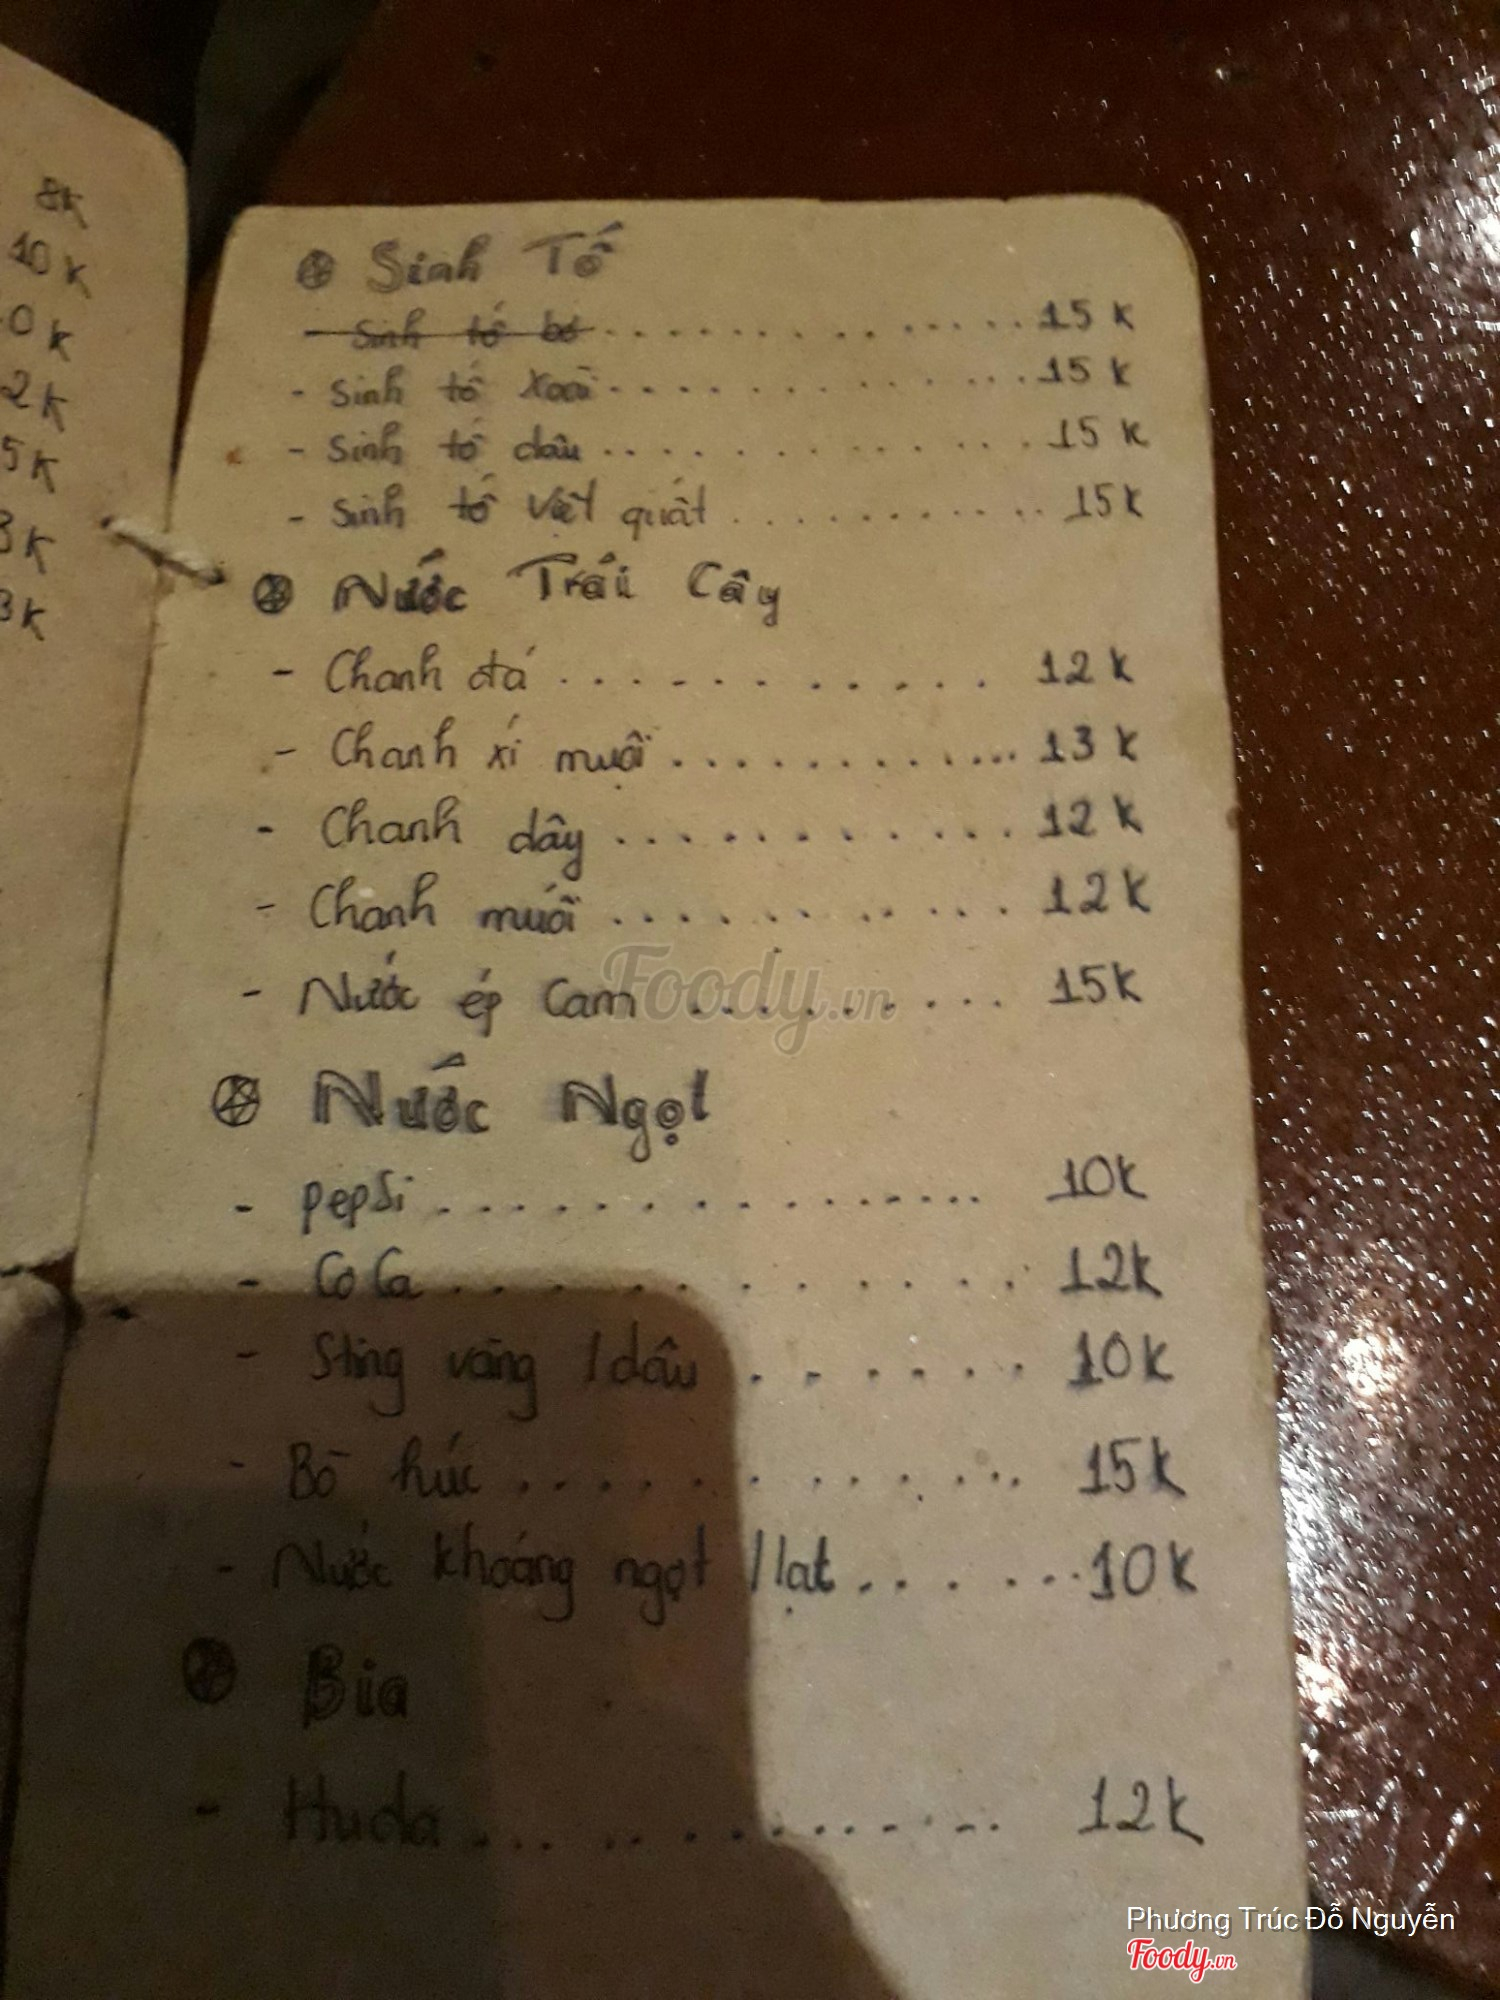 8K
10K
0K
2K
5K
3K
3K
Sinh Tố
- Sinh tố bơ ............... 15K
- Sinh tố xoài ............... 15K
- Sinh tố dâu ............... 15K
- Sinh tố việt quất ............ 15K
Nước Trái Cây
- Chanh đá ............ 12K
- Chanh xí muội ............... 13K
- Chanh dây ............ 12K
- Chanh muối ............ 12K
- Nước ép Cam .......... 15K
Nước Ngọt
- pepsi ............... 10K
- CoCa ............ 12K
- Sting vàng / dâu ....... 10K
- Bò húc ............ 15K
- Nước khoáng ngọt / lạt ....... 10K
Bia
- Huda ............ 12K
Foody.vn
Phương Trúc Đỗ Nguyễn
Foody.vn